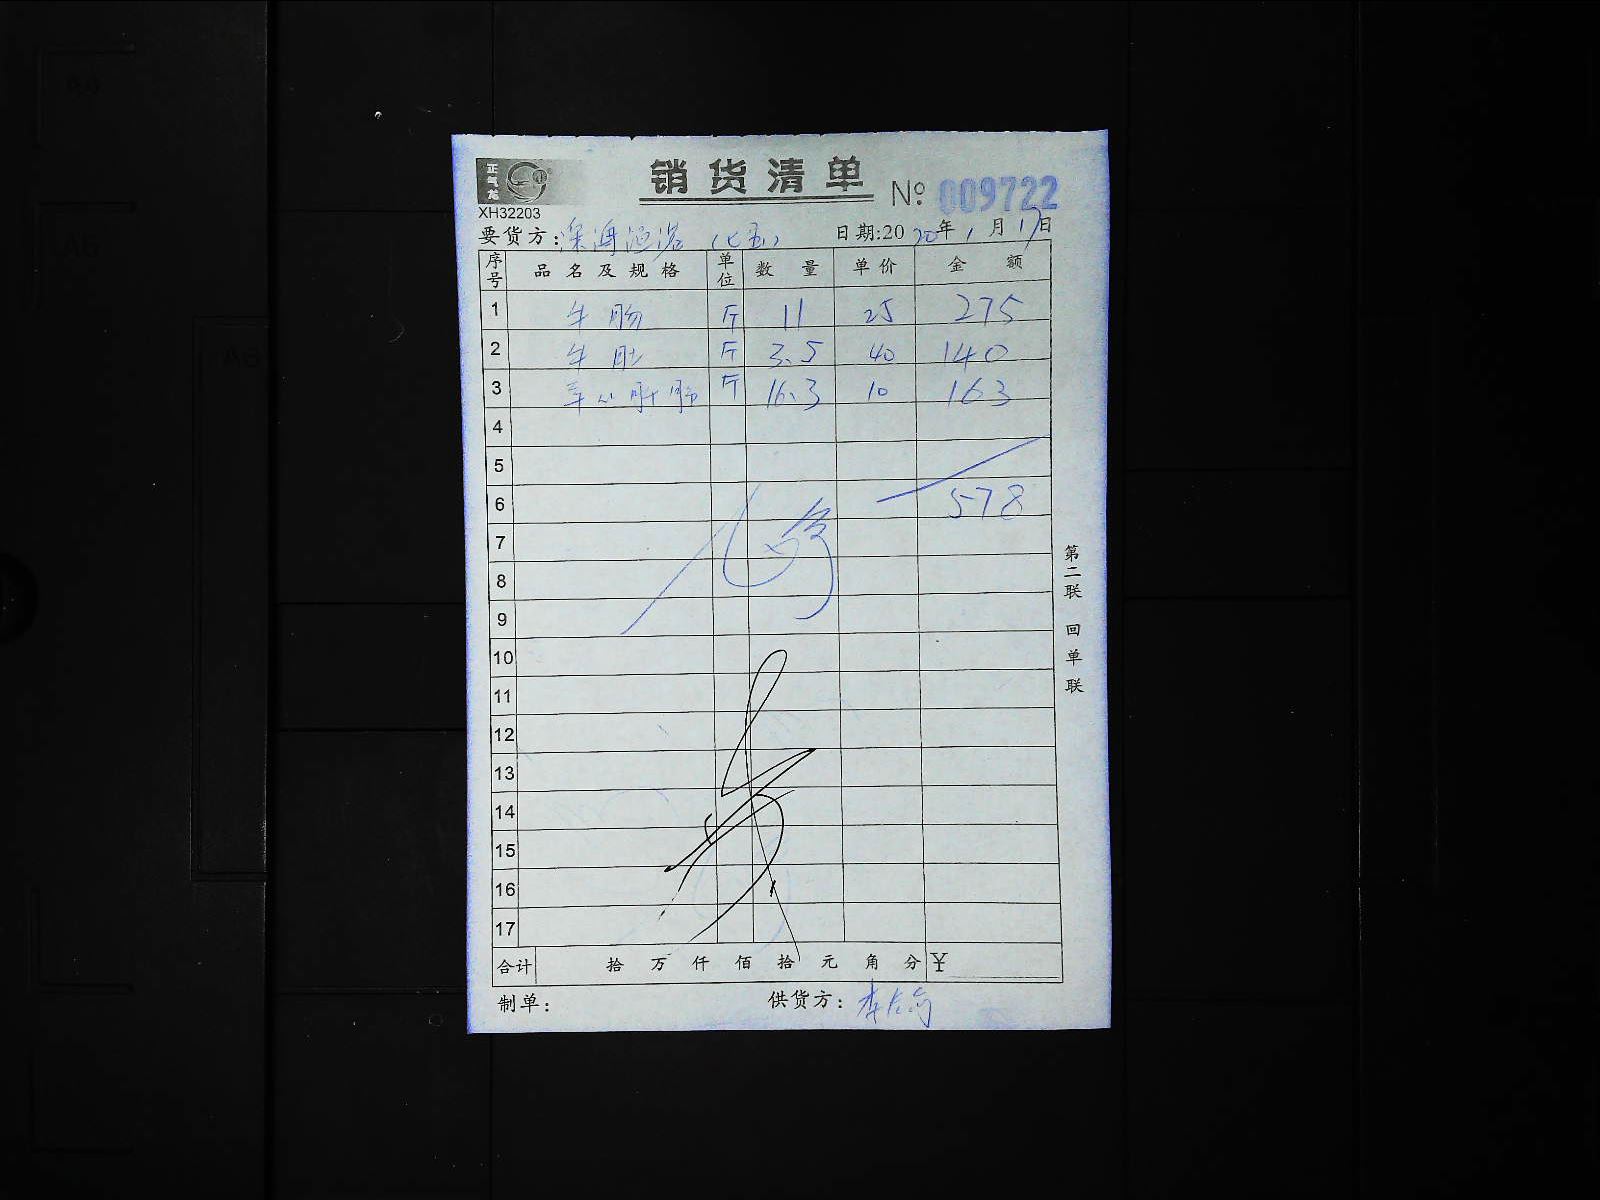 正气龙
销货清单
№ 009722
XH32203
要货方: 深海酒港 (七五) 日期:2020年1月17日
序号 品名及规格 单位 数量 单价 金额
1 牛肠 斤 11 25 275
2 牛肚 斤 3.5 40 140
3 斤 16.3 10 163
4
5
6 578
7
8
9
10
11
12
13
14
15
16
17
合计 拾 万 仟 佰 拾 元 角 分 ¥
制单: 供货方:
第二联 回单联